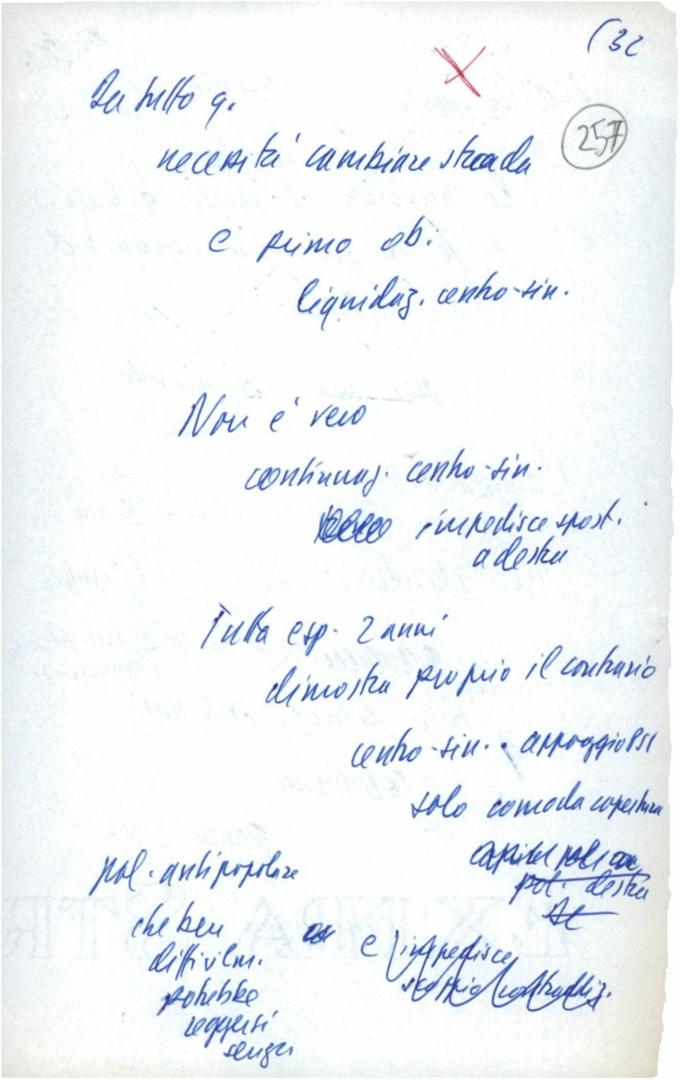 (32
257
Da tutto q.
necessità cambiare strada
e primo ob.
liquidaz. centro-sin.
Non è vero
continuaz. centro-sin.
impedisce spost.
a destra
Tutta esp. 2 anni
dimostra proprio il contrario
centro-sin. appoggio PSI
solo comoda copertura
pol. destra
pol. antipopolare
che ben
difficilm.
potrebbe
reggersi
senza
e impedisce